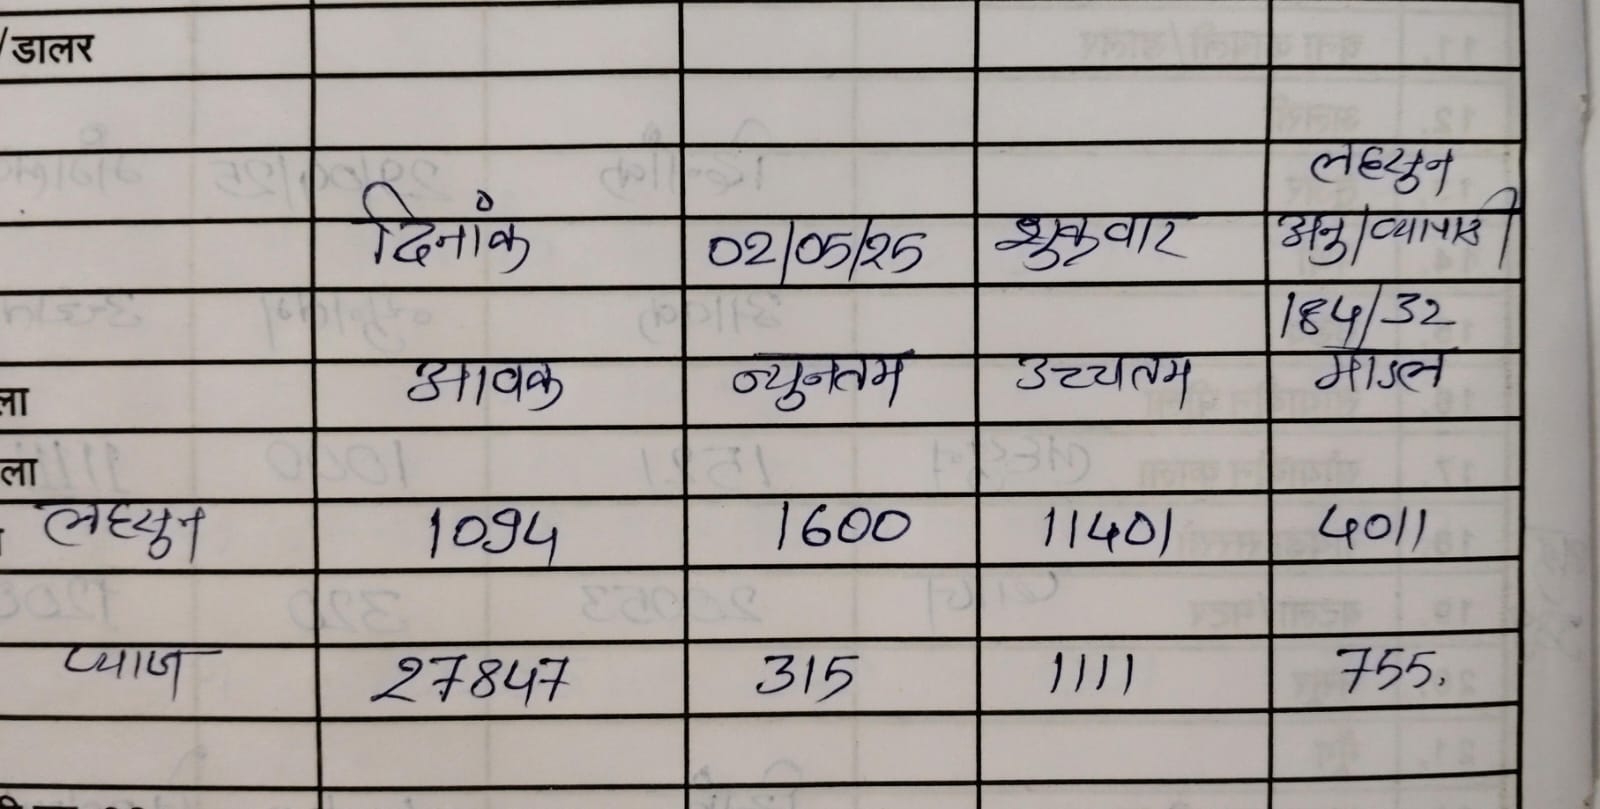 /डालर
लहसुन
दिनांक 02/05/25 शुक्रवार अनु/व्यापारी
184/32
ला आवक न्युनतम उच्चतम माडल
ला
लहसुन 1094 1600 11401 4011
प्याज 27847 315 1111 755.